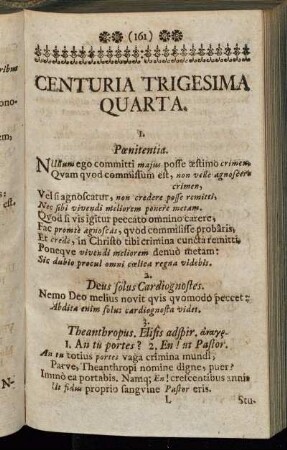 (161)
CENTURIA TRIGESIMA
QUARTA.
1.
Pœnitentia.
Nullum ego committi majus posse æstimo crimen,
Qvam qvod commissum est, non velle agnoscere
crimen,
Vel si agnoscatur, non credere posse remitti,
Nec sibi vivendi meliorem ponere metam.
Qvod si vis igitur peccato omnino carere,
Fac promtè agnoscas, qvod commisisse probâris,
Et crede, in Christo tibi crimina cuncta remitti,
Poneqve vivendi meliorem denuò metam:
Sic dubio procul omni cœlica regna videbis.
2.
Deus solus Cardiognostes.
Nemo Deo melius novit qvis qvomodò peccet:
Abdita enim solus cardiognosta videt.
3.
Theanthropus. Elisis adspir.
1. An tu portes? 2. En! ut Pastor.
An tu totius portes vaga crimina mundi,
Parve, Theanthropi nomine digne, puer?
Immò ea portabis. Namq; En! crescentibus annis
Ut fidus proprio sangvine Pastor eris.
L
Stu-